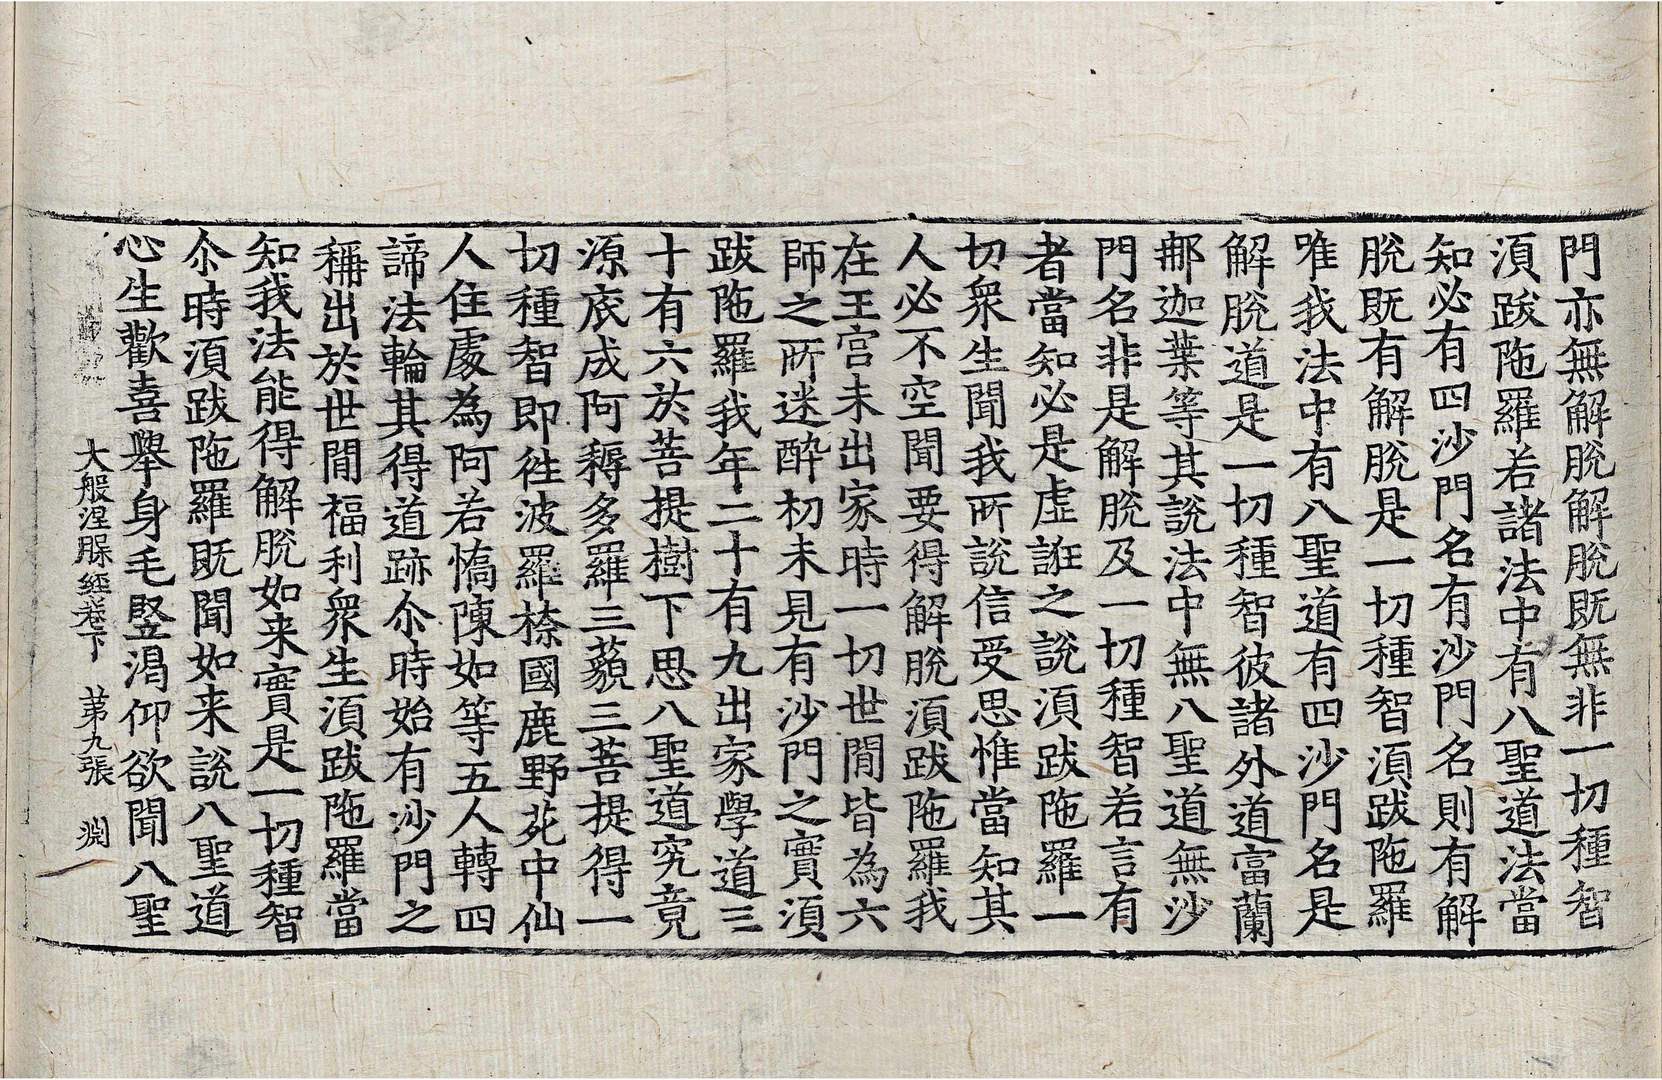 門亦無解脫解脫既無非一切種智
湏跋陁羅若諸法中有八聖道法當
知必有四沙門名有沙門名則有解
脫既有解脫是一切種智湏跋陁羅
唯我法中有八聖道有四沙門名是
解脫道是一切種智彼諸外道富蘭
那迦葉等其說法中無八聖道無沙
門名非是解脫及一切種智若言有
者當知必是虛誑之說湏跋陁羅一
切衆生聞我所說信受思惟當知其
人必不空聞要得解脫湏跋陁羅我
在王宮未出家時一切世間皆為六
師之所迷醉初未見有沙門之實湏
跋陁羅我年二十有九出家學道三
十有六於菩提樹下思八聖道究竟
源底成阿耨多羅三藐三菩提得一
切種智即徃波羅㮈國鹿野苑中仙
人住處為阿若憍陳如等五人轉四
諦法輪其得道跡尒時始有沙門之
稱出於世間福利衆生湏跋陁羅當
知我法能得解脫如来實是一切種智
尒時湏跋陁羅既聞如来說八聖道
心生歡喜舉身毛竪渴仰欲聞八聖
大般涅槃經卷下 苐九張 渕